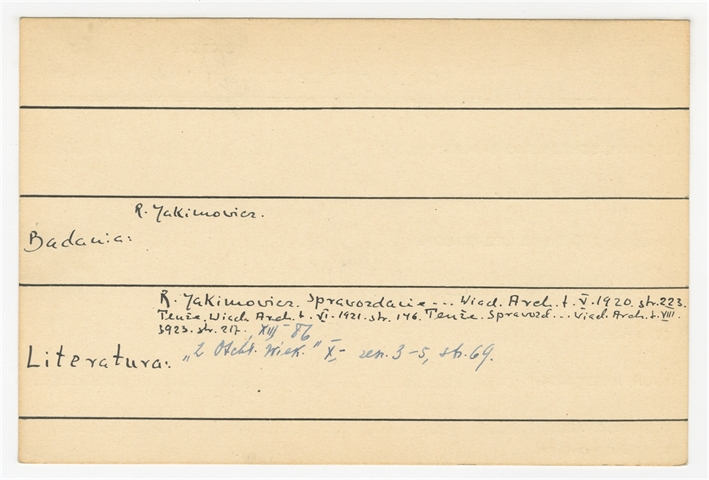 R. Jakimowicz.
Badania:
R. Jakimowicz. Sprawozdanie... Wiad. Arch. t. V. 1920. str. 223.
Tenże. Wiad. Arch. t. VI. 1921. str. 146. Tenże. Sprawozd... Wiad. Arch. t. VIII.
1923. str. 217. XIII - 86
Literatura: "Z Otchł. Wiek." X, - zesz. 3-5, str. 69.